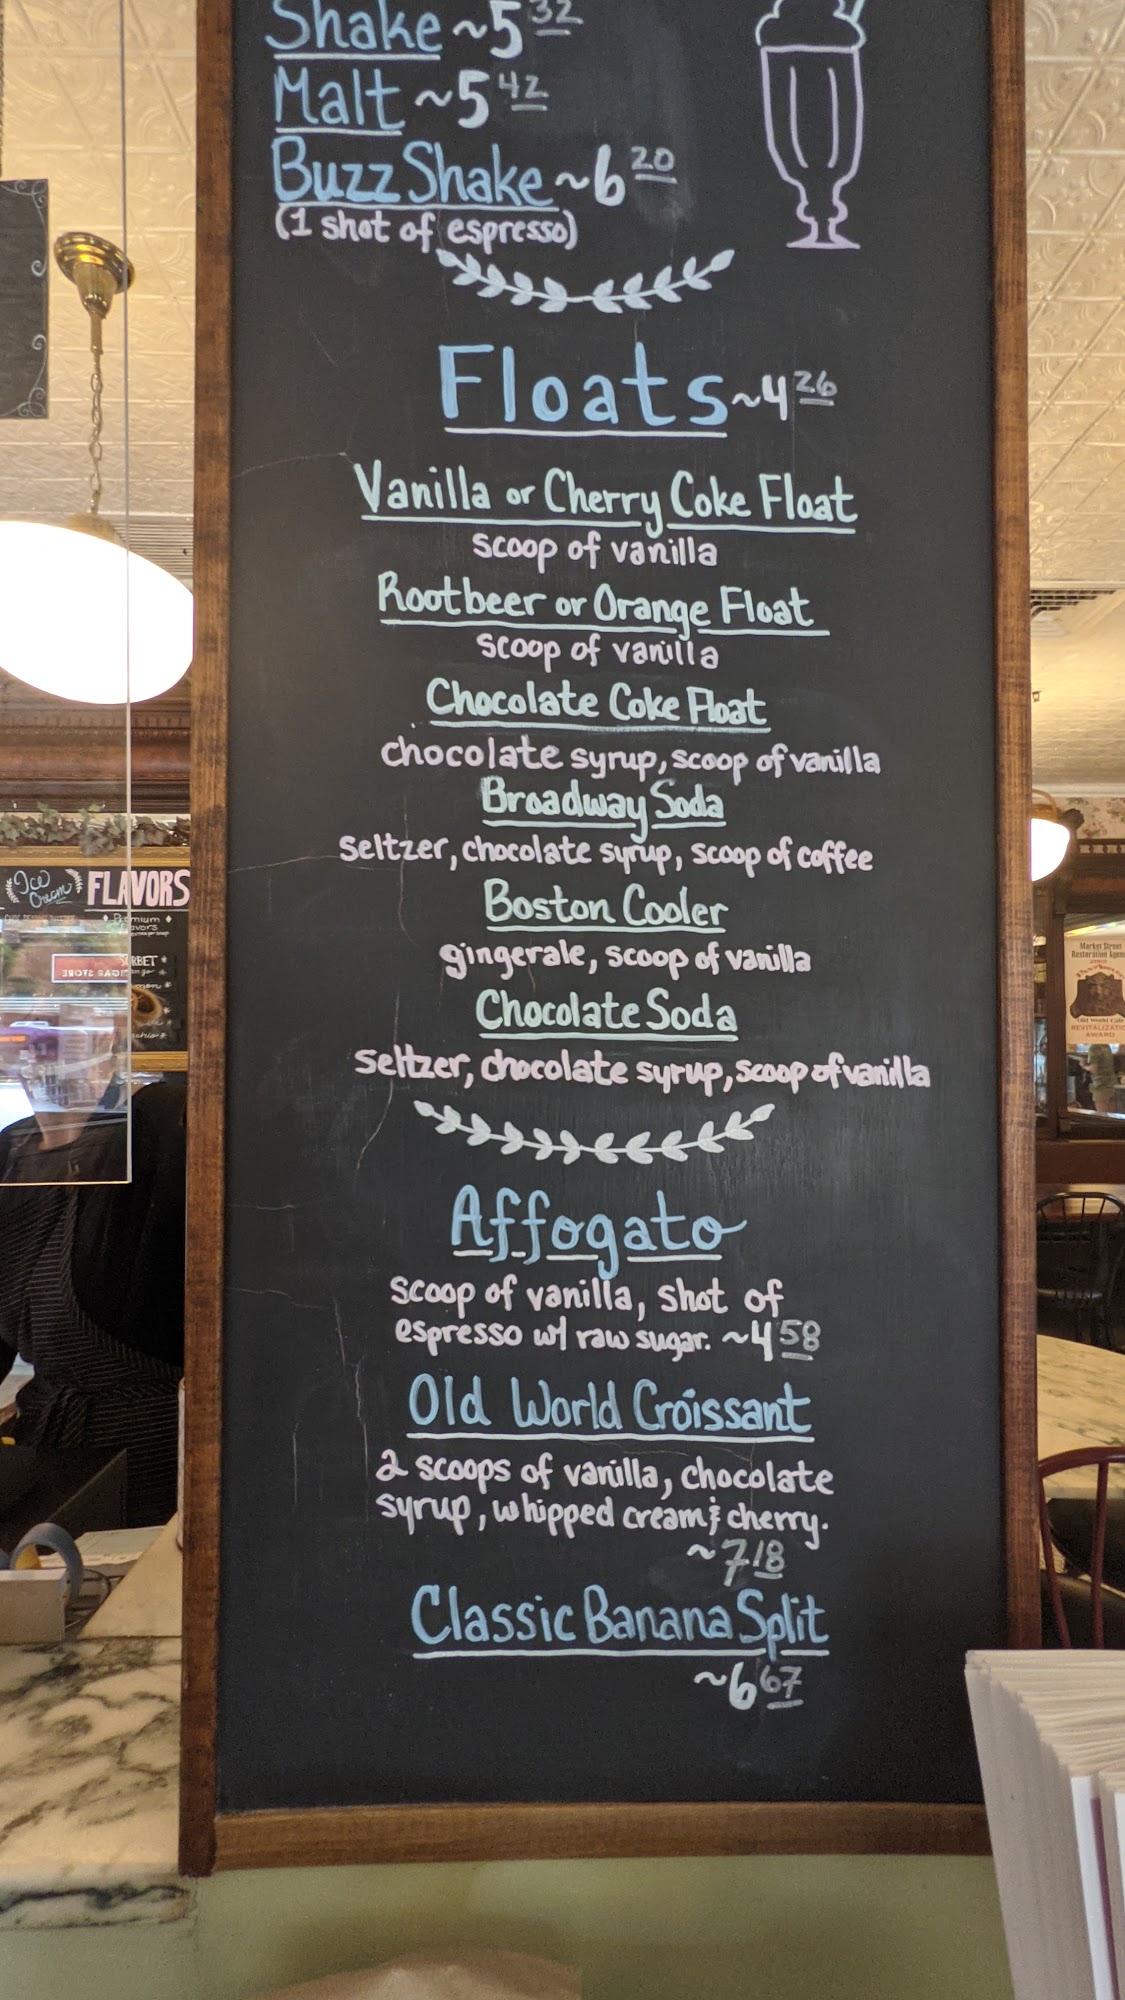 Shake ~5 32
Malt ~5 42
Buzz Shake ~6 20
(1 shot of espresso)
Floats ~4 26
Vanilla or Cherry Coke Float
scoop of vanilla
Rootbeer or Orange Float
scoop of vanilla
Chocolate Coke Float
chocolate syrup, scoop of vanilla
Broadway Soda
seltzer, chocolate syrup, scoop of coffee
Boston Cooler
gingerale, scoop of vanilla
Chocolate Soda
seltzer, chocolate syrup, scoop of vanilla
Affogato
scoop of vanilla, shot of
espresso w/ raw sugar. ~4 58
Old World Croissant
2 scoops of vanilla, chocolate
syrup, whipped cream & cherry.
~7 18
Classic Banana Split
~6 67
Ice
Cream
FLAVORS
Premium
CIGAR STORE
Market Street
Restoration Agen
Old World Cafe
REVITALIZATIO
AWARD